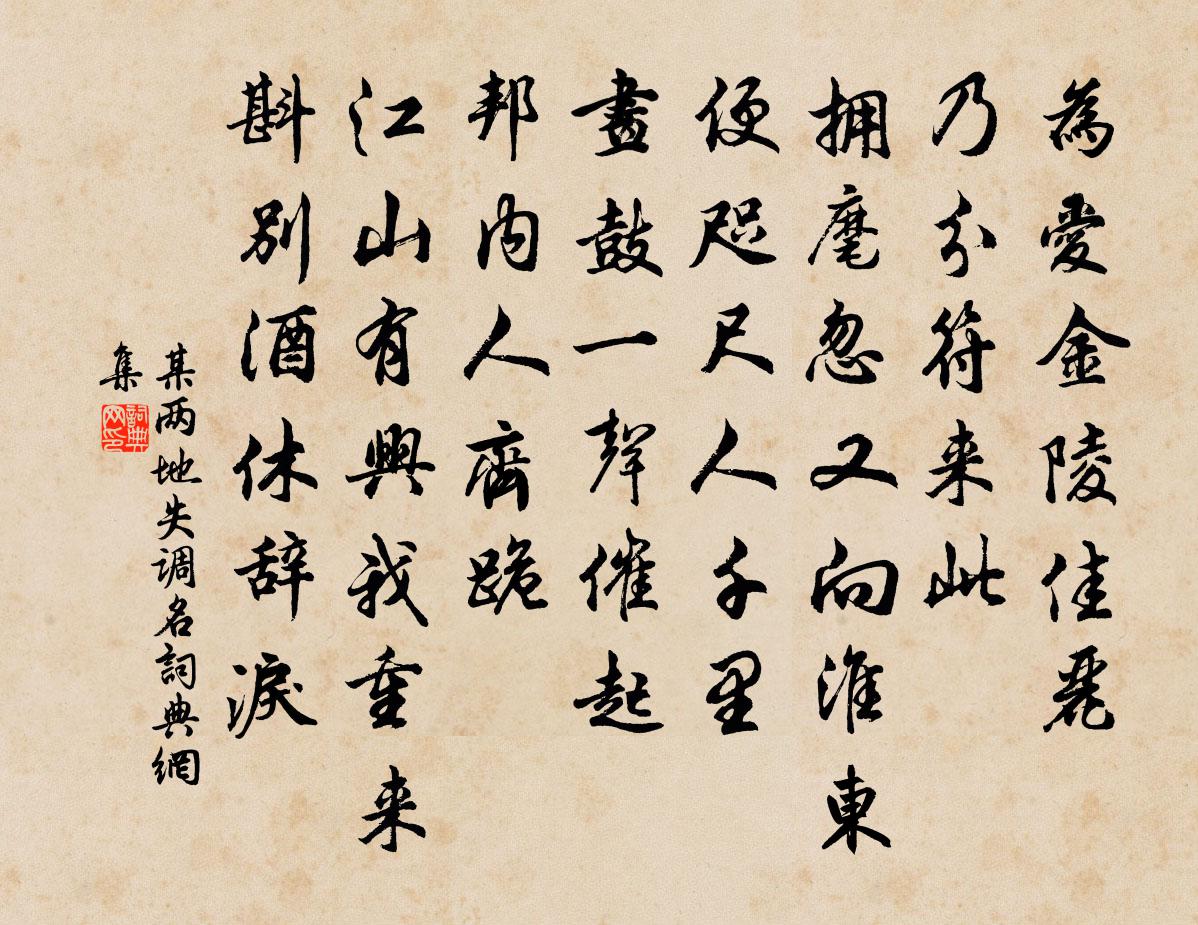 為愛金陵佳麗
乃分符来此
拥麾忽又向淮東
便咫尺人千里
畫鼓一聲催起
邦内人齊跪
江山有興我重来
斟别酒休辞淚
某两地失调名詞典網
集
詞典网印